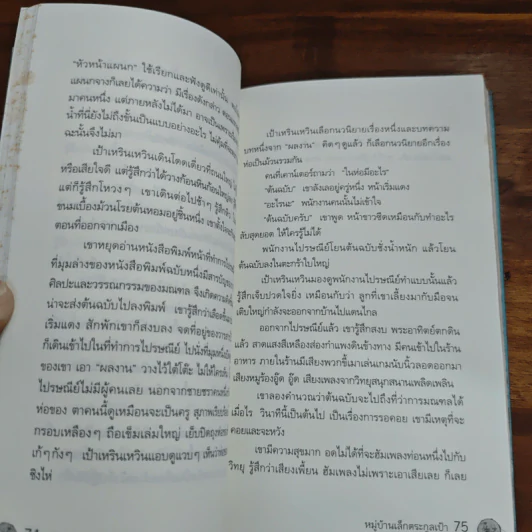 "หัวหน้าแผนก" ใช้เรียกและฟังดูดีเท่านั้น
แผนกจางก็เลยได้ความว่า มีเรื่องดังกล่าว
มาคนหนึ่ง แต่ภายหลังไม่ได้มา อาจเป็นเพราะ
น้ำที่นี่ยังไม่ถึงขั้นเป็นแบบอย่างอะไร
ฉะนั้นจึงไม่มา
เป้าเหรินเหวินเดินโดดเดี่ยวที่ถนนใหญ่
หรือเสียใจดี แต่รู้สึกว่าได้วางก้อนหินก้อนใหญ่
แต่ก็รู้สึกโหวงๆ เขาเดินต่อไปช้าๆ รู้สึกหิว
ขนมเบื้องม้วนโรยต้นหอมอยู่ชิ้นหนึ่ง
ตอนที่ออกจากเมือง
เขาหยุดอ่านหนังสือพิมพ์หน้าที่ทำการ
ที่มุมล่างของหนังสือพิมพ์ฉบับหนึ่งมีสารบัญ
ศิลปะและวรรณกรรมของมณฑล จึงเกิดความ
น่าจะส่งต้นฉบับไปลงพิมพ์ เขารู้สึกว่าเลือด
เริ่มแดง สักพักเขาก็สงบลง จดที่อยู่ของวารสาร
ก็เดินเข้าไปในที่ทำการไปรษณีย์ ไปนั่งที่มุมหนึ่ง
ของเขา เอา "ผลงาน" วางไว้ใต้โต๊ะ ไม่ให้ใคร
ไปรษณีย์ไม่มีผู้คนเลย นอกจากชายชราคนหนึ่ง
ห่อของ ตาคนนี้ดูเหมือนจะเป็นครู สุภาพเรียบร้อย
กรอบเหลืองๆ ถือเข็มเล่มใหญ่ เย็บปิดถุง
เก้ๆ กังๆ เป้าเหรินเหวินแอบดูแวบๆ เห็นว่า
ซิงไห่
74
เป้าเหรินเหวินเลือกนวนิยายเรื่องหนึ่งและบทความ
บทหนึ่งจาก "ผลงาน" คิดๆ ดูแล้ว ก็เลือกนวนิยายอีกเรื่อง
ห่อเป็นม้วนรวมกัน
คนที่เคาน์เตอร์ถามว่า "ในห่อมีอะไร"
"ต้นฉบับ" เขาลังเลอยู่ครู่หนึ่ง หน้าเริ่มแดง
"อะไรนะ" พนักงานคนนั้นไม่เข้าใจ
"ต้นฉบับครับ" เขาพูด หน้าขาวซีดเหมือนกับทำอะไร
ลับสุดยอด ให้ใครรู้ไม่ได้
พนักงานไปรษณีย์โยนต้นฉบับชั่งน้ำหนัก แล้วโยน
ต้นฉบับลงในตะกร้าใบใหญ่
เป้าเหรินเหวินมองดูพนักงานไปรษณีย์ทำแบบนั้นแล้ว
รู้สึกเจ็บปวดใจยิ่ง เหมือนกับว่า ลูกที่เขาเลี้ยงมากับมือจน
เติบใหญ่กำลังจะออกจากบ้านไปแดนไกล
ออกจากไปรษณีย์แล้ว เขารู้สึกสงบ พระอาทิตย์ตกดิน
แล้ว สาดแสงสีเหลืองส่องกำแพงดินข้างทาง มีคนเข้าไปในร้าน
อาหาร ภายในร้านมีเสียงพวกขี้เมาเล่นเกมนับนิ้วลอดออกมา
เสียงหมูร้องอู๊ด อู๊ด เสียงเพลงจากวิทยุสนุกสนานเพลิดเพลิน
เขาลองคำนวณว่าต้นฉบับจะไปถึงที่ว่าการมณฑลได้
เมื่อไร วินาทีนี้เป็นต้นไป เป็นเรื่องการรอคอย เขามีเหตุที่จะ
คอยและจะหวัง
เขามีความสุขมาก อดไม่ได้ที่จะฮัมเพลงท่อนหนึ่งไปกับ
วิทยุ รู้สึกว่าเสียงเพี้ยน ฮัมเพลงไม่เพราะเอาเสียเลย ก็เลย
หมู่บ้านเล็กตระกูลเป้า 75